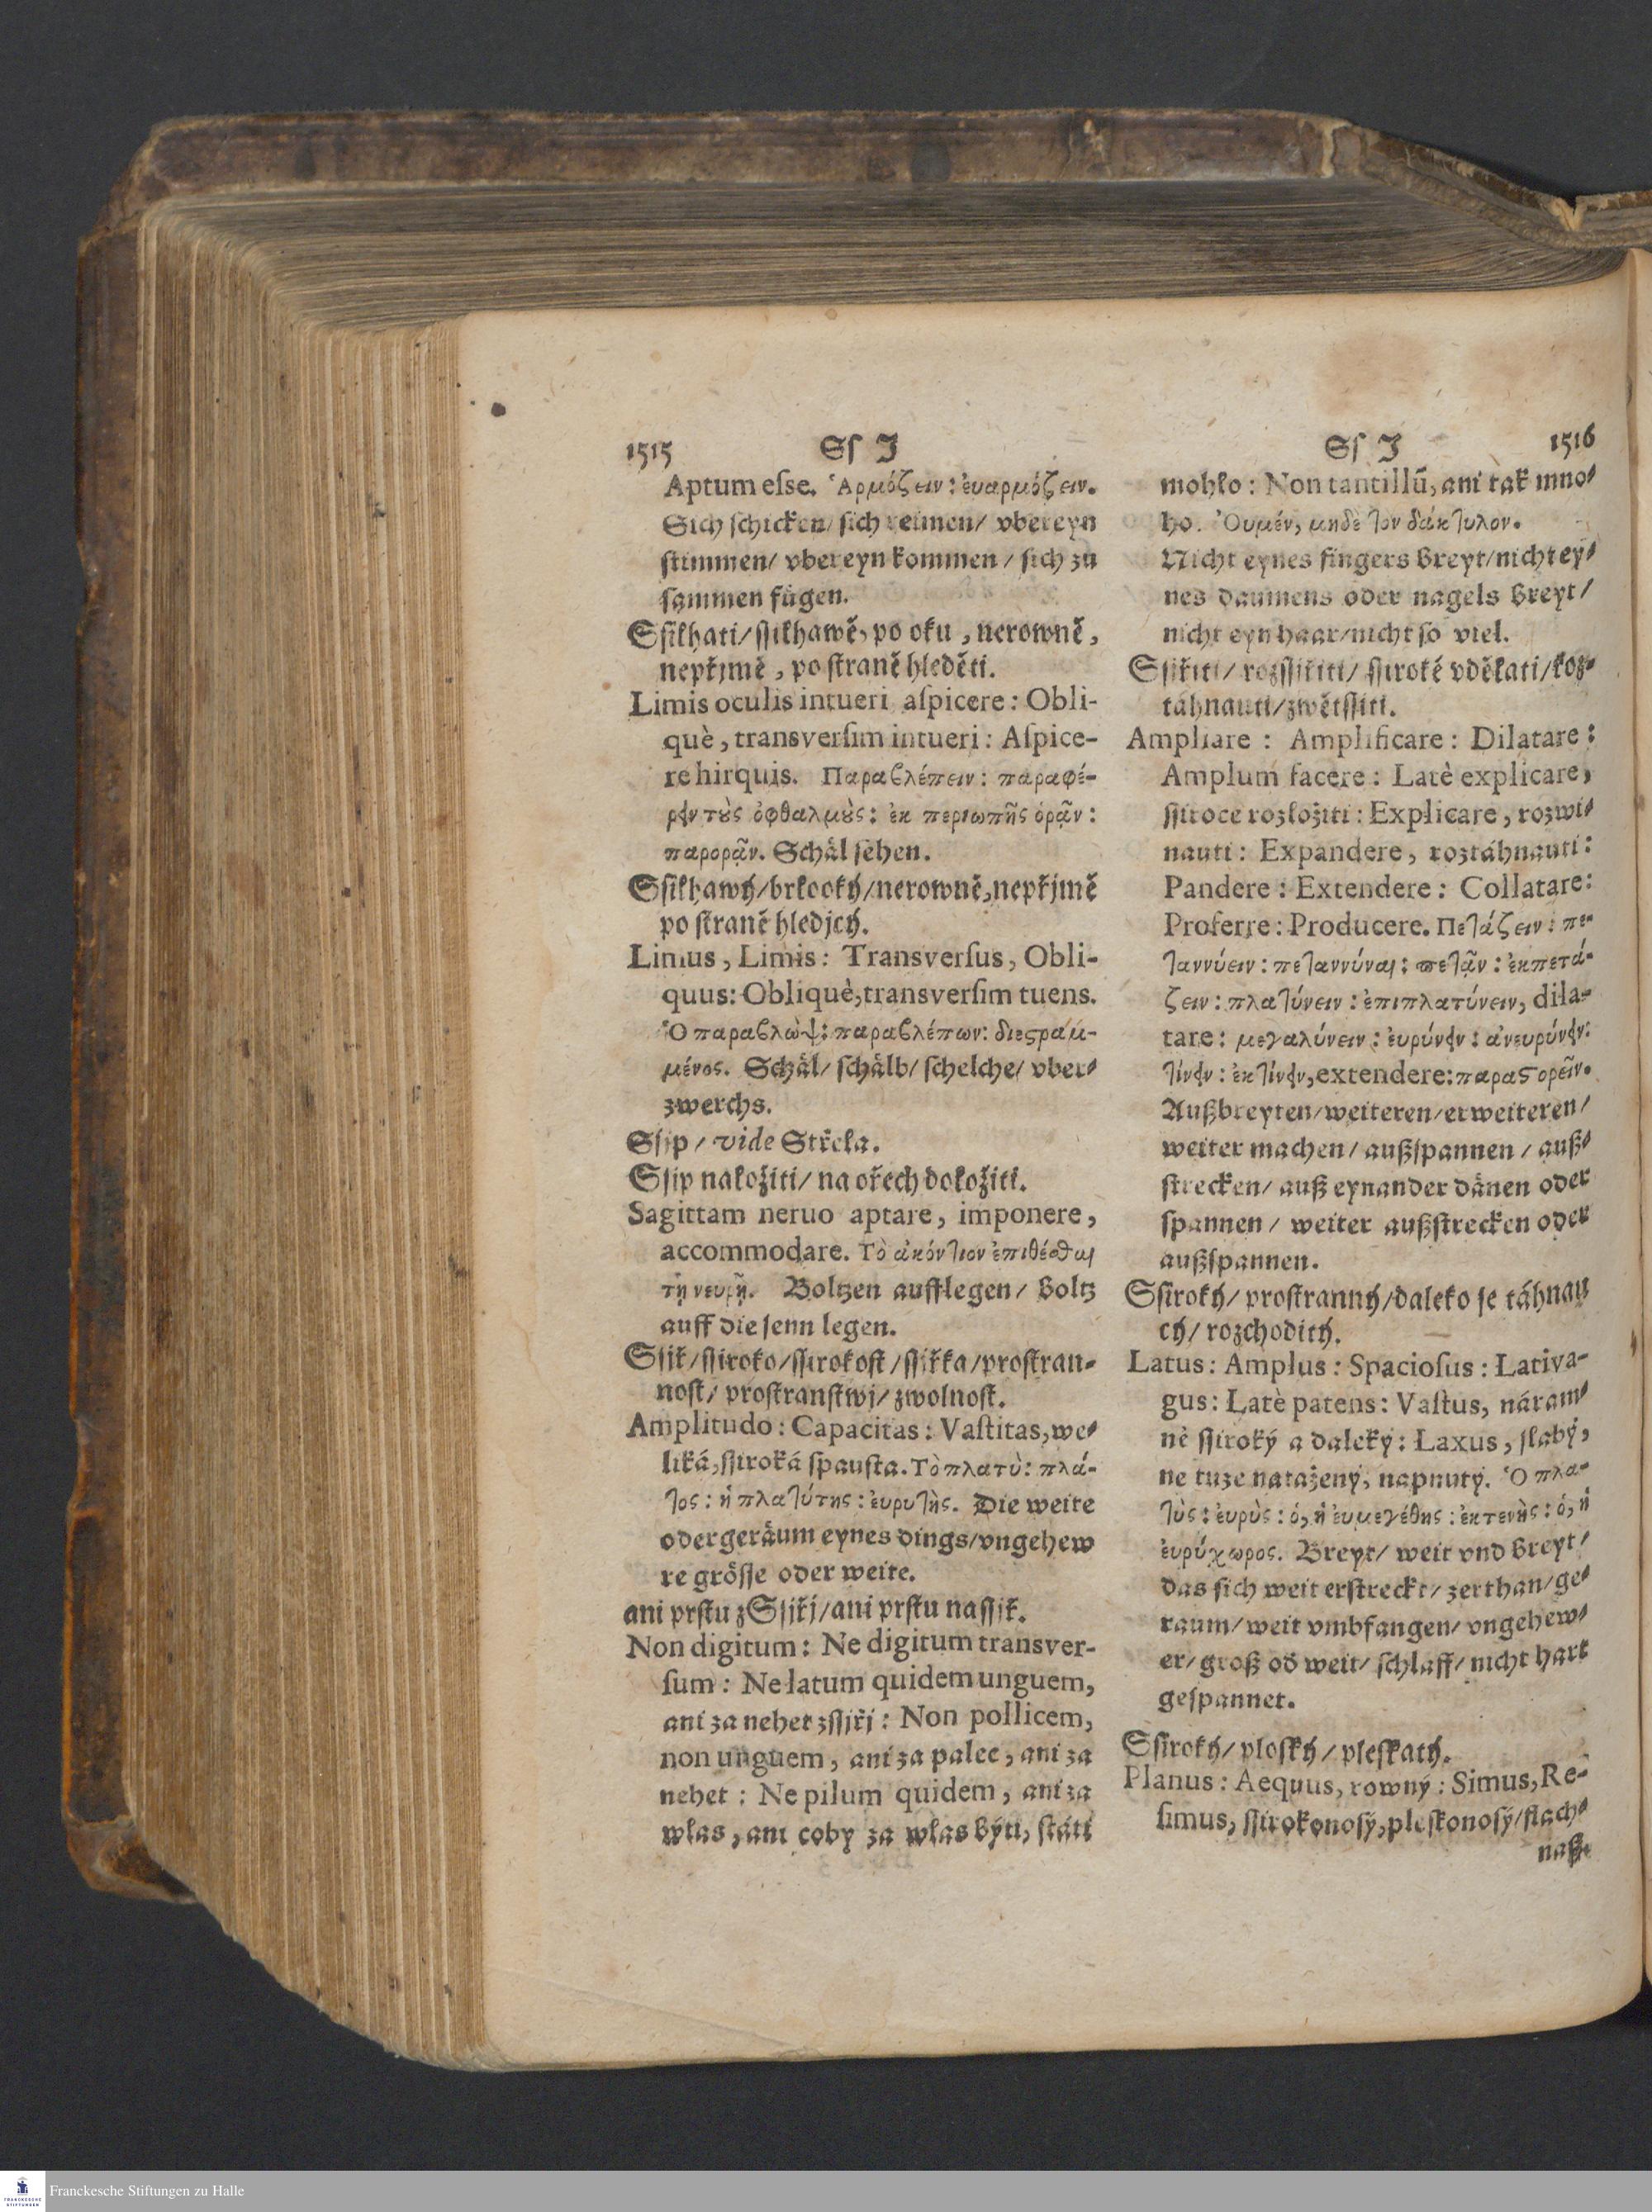 1515 Sſ J
Aptum eſse. Ἁρμόζειν: ἐυαρμόζειν.
Sich ſchicken/ ſich reimen/ vbereyn
ſtimmen/ vbereyn kommen / ſich zu
ſammen fügen.
Sſilhati/ſſilhawě, po oku , nerowně,
nepřjmě , po ſtraně hleděti.
Limis oculis intueri aſpicere: Obli-
què, transverſim intueri: Aſpice-
re hirquis. Παραβλέπειν: παραφέ-
ρειν τοὺς ὀφθαλμοὺς: ἐκ περιωπῆς ὁρᾷν:
παρορᾷν. Schäl ſehen.
Sſilhawý/brlooký/nerowně,nepřjmě
po ſtraně hledjcý.
Limus, Limis: Transverſus, Obli-
quus: Obliquè,transverſim tuens.
Ὁ παραβλὼψ: παραβλέπων: διεςραμ-
μένος. Schäl/ ſchälb/ ſchelche/ vber⸗
zwerchs.
Sſjp / vide Střela.
Sſjp naložiti/ na ořech doložiti.
Sagittam neruo aptare, imponere,
accommodare. Τὸ ἀκόντιον ἐπιθέσθαι
τῇ νευρῇ. Boltzen auff⸗legen/ boltz
auff die ſenn legen.
Sſjř/ſſiroko/ſſirokoſt/ſſiřka/proſtran⸗
noſt/ proſtranſtwj/ zwolnoſt.
Amplitudo: Capacitas: Vaſtitas, we⸗
liká, ſſiroká ſpauſta. Τὸ πλατὺ: πλά-
τος: ἡ πλατύτης: ἐυρυτὴς. Die weite
oder geräum eynes dings/vngehew
re gröſſe oder weite.
ani prſtu zSſjřj/ani prſtu naſſjř.
Non digitum: Ne digitum transver-
ſum: Ne latum quidem unguem,
ani za nehet zſſjřj: Non pollicem,
non unguem, ani za palec, ani za
nehet: Ne pilum quidem, ani za
wlas, ani coby za wlas býti, ſtáti
Sſ J 1516
mohlo: Non tantillũ, ani tak mno⸗
ho. Ὀυμέν, μηδὲ τον δάκτυλον.
Nicht eynes fingers breyt/nicht ey⸗
nes daumens oder nagels breyt/
nicht eyn haar/nicht ſo viel.
Sſiřiti/ rozſſiřiti/ ſſiroké vdělati/roz⸗
táhnauti/zwětſſiti.
Ampliare: Amplificare: Dilatare:
Amplum facere: Latè explicare,
ſſiroce rozložiti: Explicare, rozwi⸗
nauti: Expandere, roztáhnauti:
Pandere: Extendere: Collatare:
Proferre: Producere. Πετάζειν: πε-
ταννύειν: πεταννύναι: πετᾷν: ἐκπετά-
ζειν: πλατύνειν: ἐπιπλατύνειν, dila-
tare: μεγαλύνειν: ἐυρύνειν: ἀνευρύνειν:
τίνειν: ἐκτίνειν, extendere: παραςορεῖν.
Außbreyten/weiteren/erweiteren/
weiter machen/ außſpannen / auß⸗
ſtrecken/ auß eynander dänen oder
ſpannen / weiter außſtrecken oder
außſpannen.
Sſiroký/ proſtranný/daleko ſe táhnau
cý/ rozchoditý.
Latus: Amplus: Spacioſus: Lativa-
gus: Latè patens: Vaſtus, náram⸗
ně ſſiroký a daleký: Laxus, ſlabý,
ne tuze natažený, napnutý. Ὁ πλα-
τὺς: ἐυρὺς: ὁ, ἡ ἐυμεγέθης: ἐκτενὴς: ὁ, ἡ
ἐυρύχωρος. Breyt/ weit vnd breyt/
das ſich weit erſtreckt/ zerthan/ge⸗
raum/ weit vmbfangen/ vngehew⸗
er/ groß od̄ weit/ ſchlaff/ nicht hart
geſpannet.
Sſiroký/ ploſký / pleſkatý.
Planus: Aequus, rowný: Simus, Re-
ſimus, ſſirokonoſý, pleſkonoſý/flach⸗
naß⸗
Franckesche Stiftungen zu Halle